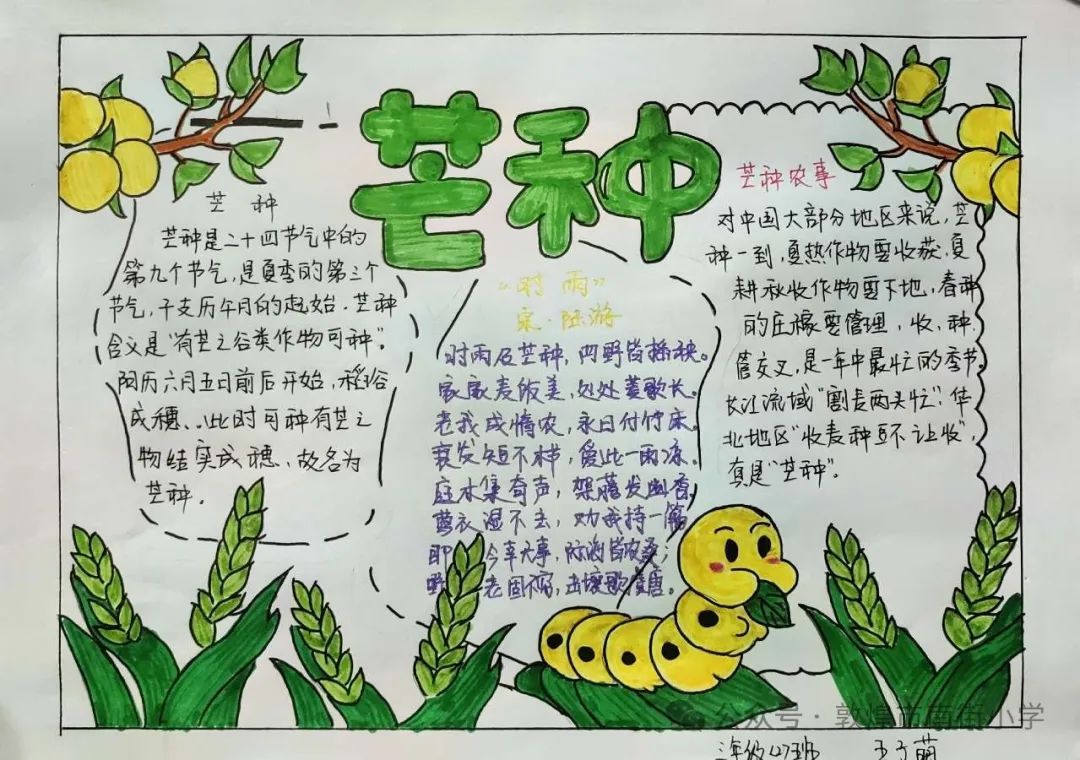 芒种
芒 种
芒种是二十四节气中的
第九个节气,是夏季的第三个
节气,干支历午月的起始.芒种
含义是“有芒之谷类作物可种”。
阳历六月五日前后开始,稻谷
成穗、..此时可种有芒之
物结实成穗、故名为
芒种.
“时雨”
宋·陆游
时雨及芒种,四野皆插秧。
家家麦饭美,处处菱歌长。
老我成惰农,永日付竹床。
衰发短不栉,爱此一雨凉。
庭木集奇声,架藤发幽香。
莺衣湿不去,劝我持一觞
即 今幸无事,际海皆农桑;
野 老固不穷,击壤歌虞唐。
芒种农事
对中国大部分地区来说,芒
种一到,夏热作物要收获.夏
耕秋收作物要下地,春种
的庄稼要管理,收,种.
管交叉,是一年中最忙的季节
长江流域“割麦两头忙”;华
北地区“收麦种豆不让收”,
真是“芒种”。
公众号·敦煌市南街小学
三年级(2)班 王子萌